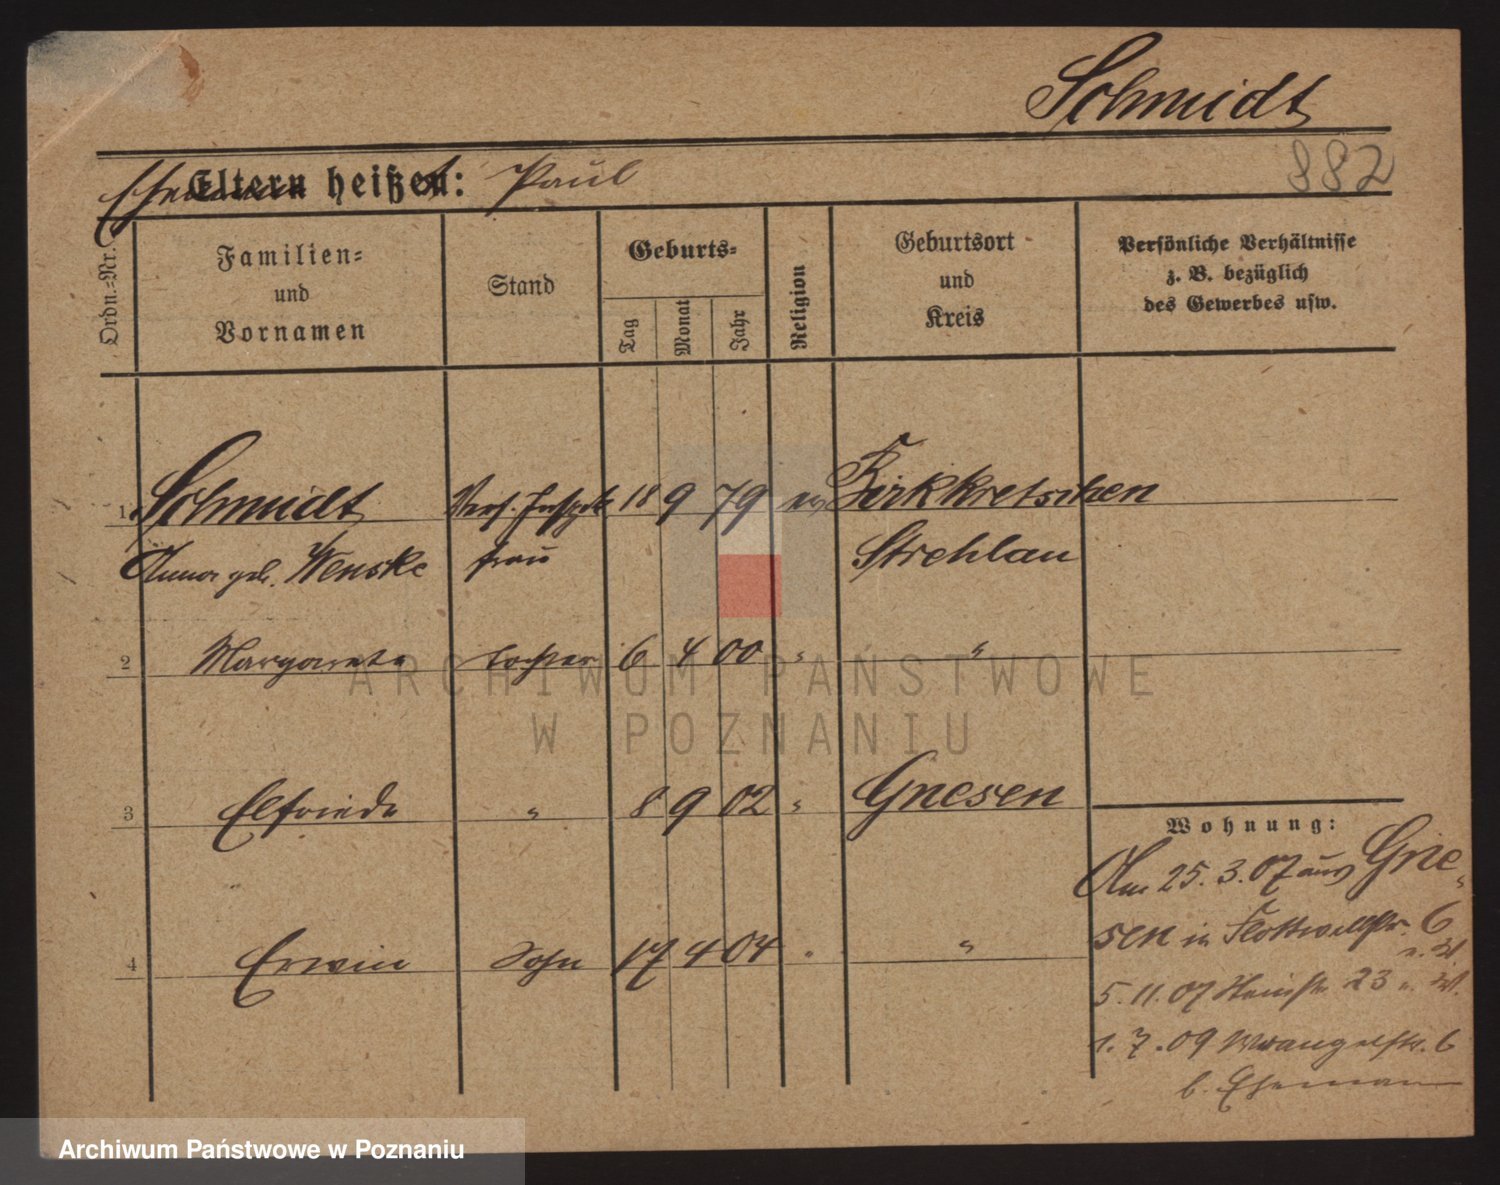 Schmidt
882
Eltern heißen: Paul
Ehemann
Ordn.-Nr.
Familien-
und
Vornamen
Stand
Geburts-
Tag
Monat
Jahr
Religion
Geburtsort
und
Kreis
Persönliche Verhältnisse
z. B. bezüglich
des Gewerbes usw.
1 Schmidt Vers. Inspekt. 18 9 79 ev Birkkretschen
Anna geb. Wenske frau Strehlau
2 Margarete Tochter 6 4 00 " "
3 Elfriede " 8 9 02 " Gnesen
4 Erwin Sohn 17 4 04 " "
Wohnung:
Am 25. 3. 07 aus Gne-
sen in Flottwellstr. 6
5. 11. 07 23
1. 7. 09 Wrangelstr. 6
b. Ehemann
ARCHIWUM PAŃSTWOWE
W POZNANIU
Archiwum Państwowe w Poznaniu